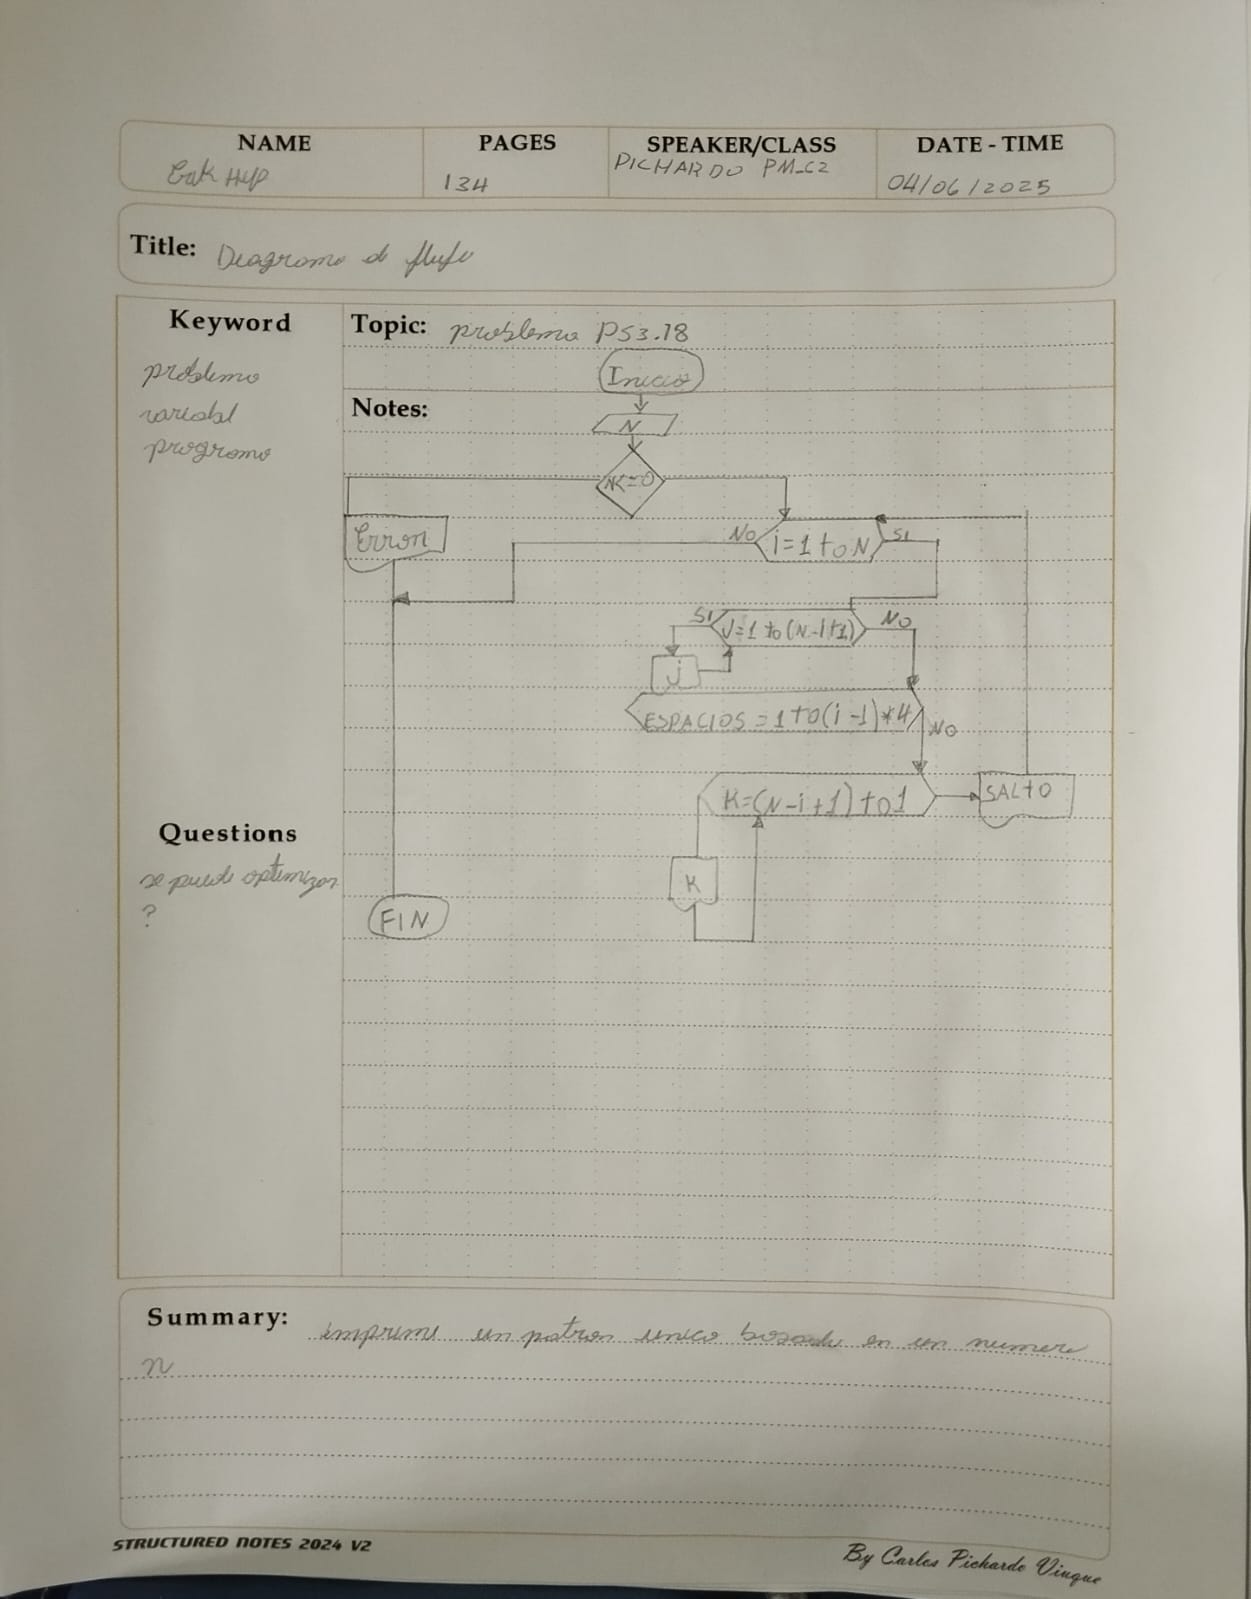 NAME PAGES SPEAKER/CLASS DATE - TIME
134 PICHARDO PM_C2 04/06/2025
Title: Diagrama de flujo
Keyword
Topic: problema PS3.18
problema
variabl
programa
Inicio
Notes:
N
N<=0
Error
No i=1 to N Si
SI J=1 to (N-i+1) NO
j
ESPACIOS = 1 to (i-1)*4 NO
K=(N-i+1) to 1
SALTO
K
Questions
se puede optimizar
?
FIN
Summary: imprime un patron unico basado en un numero
n
STRUCTURED NOTES 2024 V2
By Carlos Pichardo Viuque